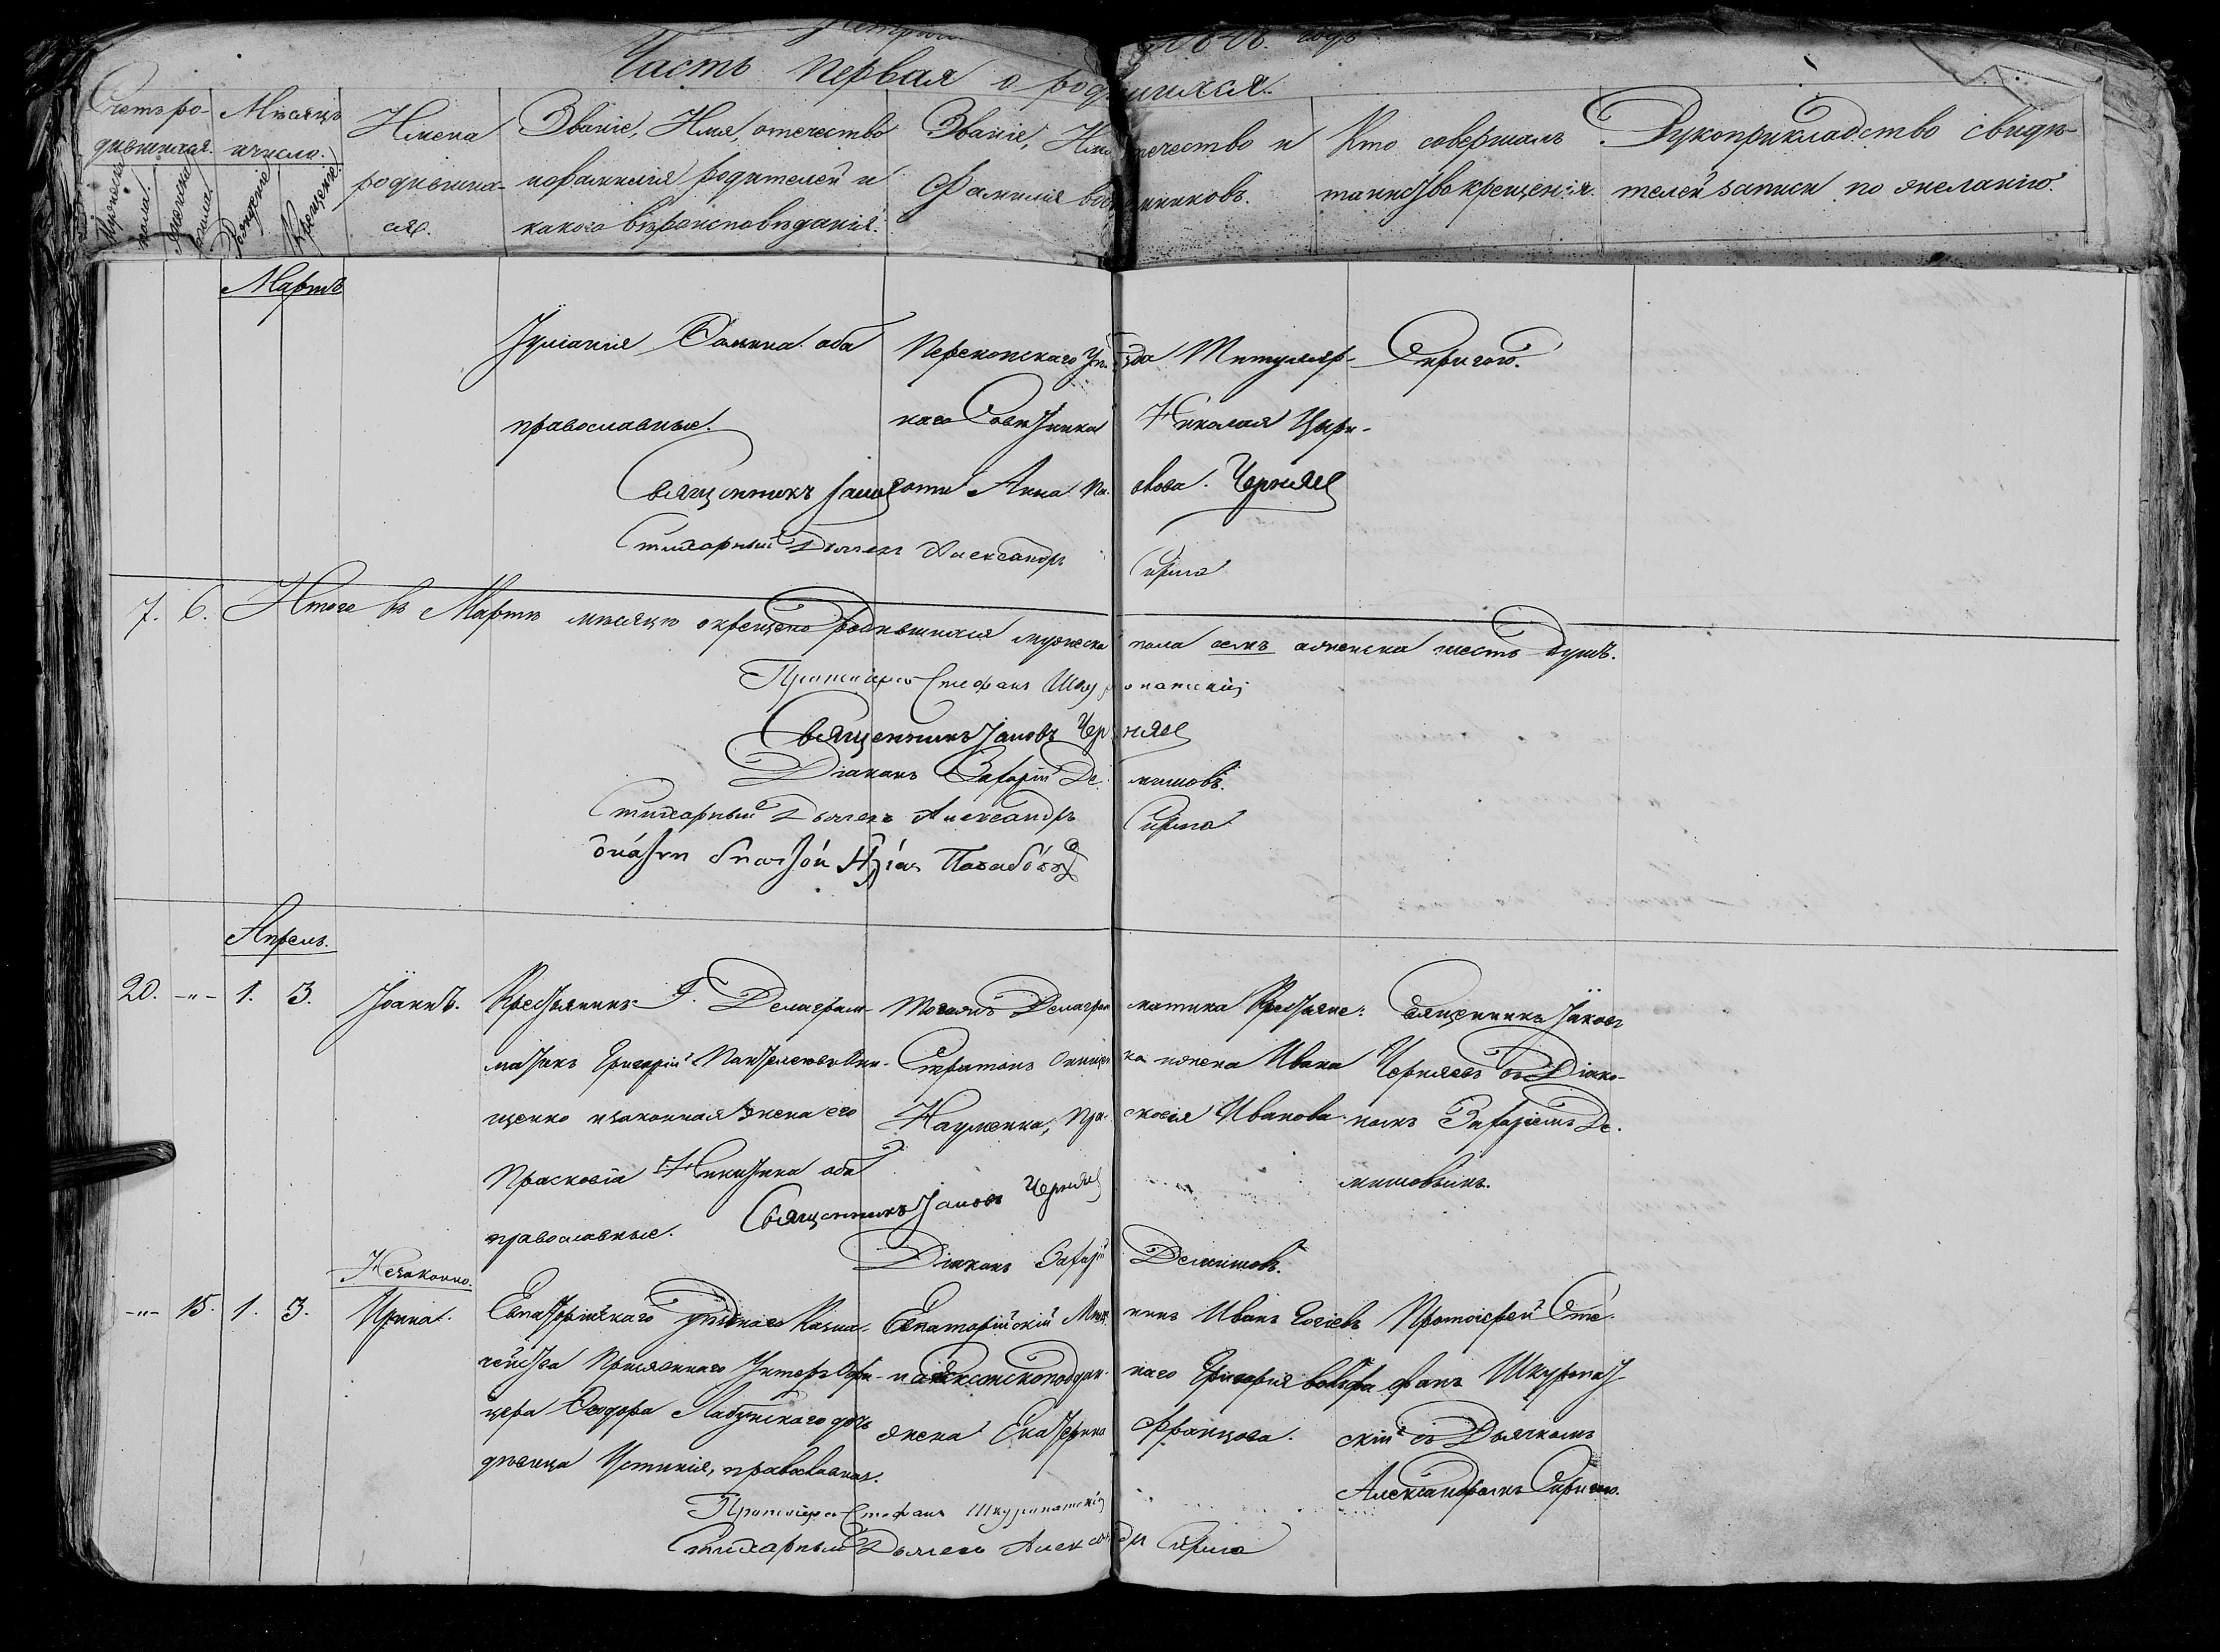 Часть первая о родившихся.
Счетъ ро-
дившихся.
Мѣсяцъ
и число.
Имена
родивших-
ся.
Званіе, Имя, отечество
и фамилія родителей и
какого вѣроисповѣданія.
Званіе, Имя отечество и
Фамилія воспріемниковъ.
Кто совершалъ
таинство крещенія.
Рукоприкладство свидѣ-
телей записи по желанію.
Мужеска
пола.
Женска
пола.
Рожденіе
Крещеніе
Мартъ
Іуліанія Фомина оба
православные.
Перекопскаго Уѣзда Титуляр-
наго Совѣтника Николая Цыри-
Сиригою.
Священникъ Черняев
Стихарный Дьячекъ Александръ Сирига
7. 6. Итого въ Мартѣ мѣсяцѣ окрещено родившихся мужеска пола семь а женска шесть душъ.
Протоіерей Стефанъ Шкуропатскій
Священникъ Іаковъ Черняев
Діаконъ Захарій Демишовъ.
Стихарный Дьячекъ Александръ Сирига
Апрель.
20. -"- 1. 3. Іоаннъ.
Крестьянинъ Г. Делаграм-
матикъ Григорій Пантелеевъ Они-
щенко и законная жена его
Прасковія Никитина оба
православные.
Тогожъ Делаграмматика Крестьяне:
Стратонъ Онищенка жена Ивана
Науменка, Прасковія Иванова
Священникъ Іаковъ
Черняевъ съ Діако-
номъ Захаріемъ Де-
мишовымъ.
Священникъ Іаковъ Черняев
Діаконъ Захарій Демишовъ.
Незаконно.
-"- 15. 1. 3. Ирина.
Евпаторійскаго Уѣзднаго Казна-
чейства Присяжнаго Унтеръ Офи-
цера Феодора Лабунскаго дочь
дѣвица Устинія, православная.
Евпаторійскій Мѣщанинъ Иванъ
наго Григорія
жена Екатерина Францова.
Протоіерей Сте-
фанъ Шкуропат-
скій съ Дьячкомъ
Александромъ Сиригою.
Протоіерей Стефанъ Шкуропатскій
Стихарный Дьячекъ Александръ Сирига